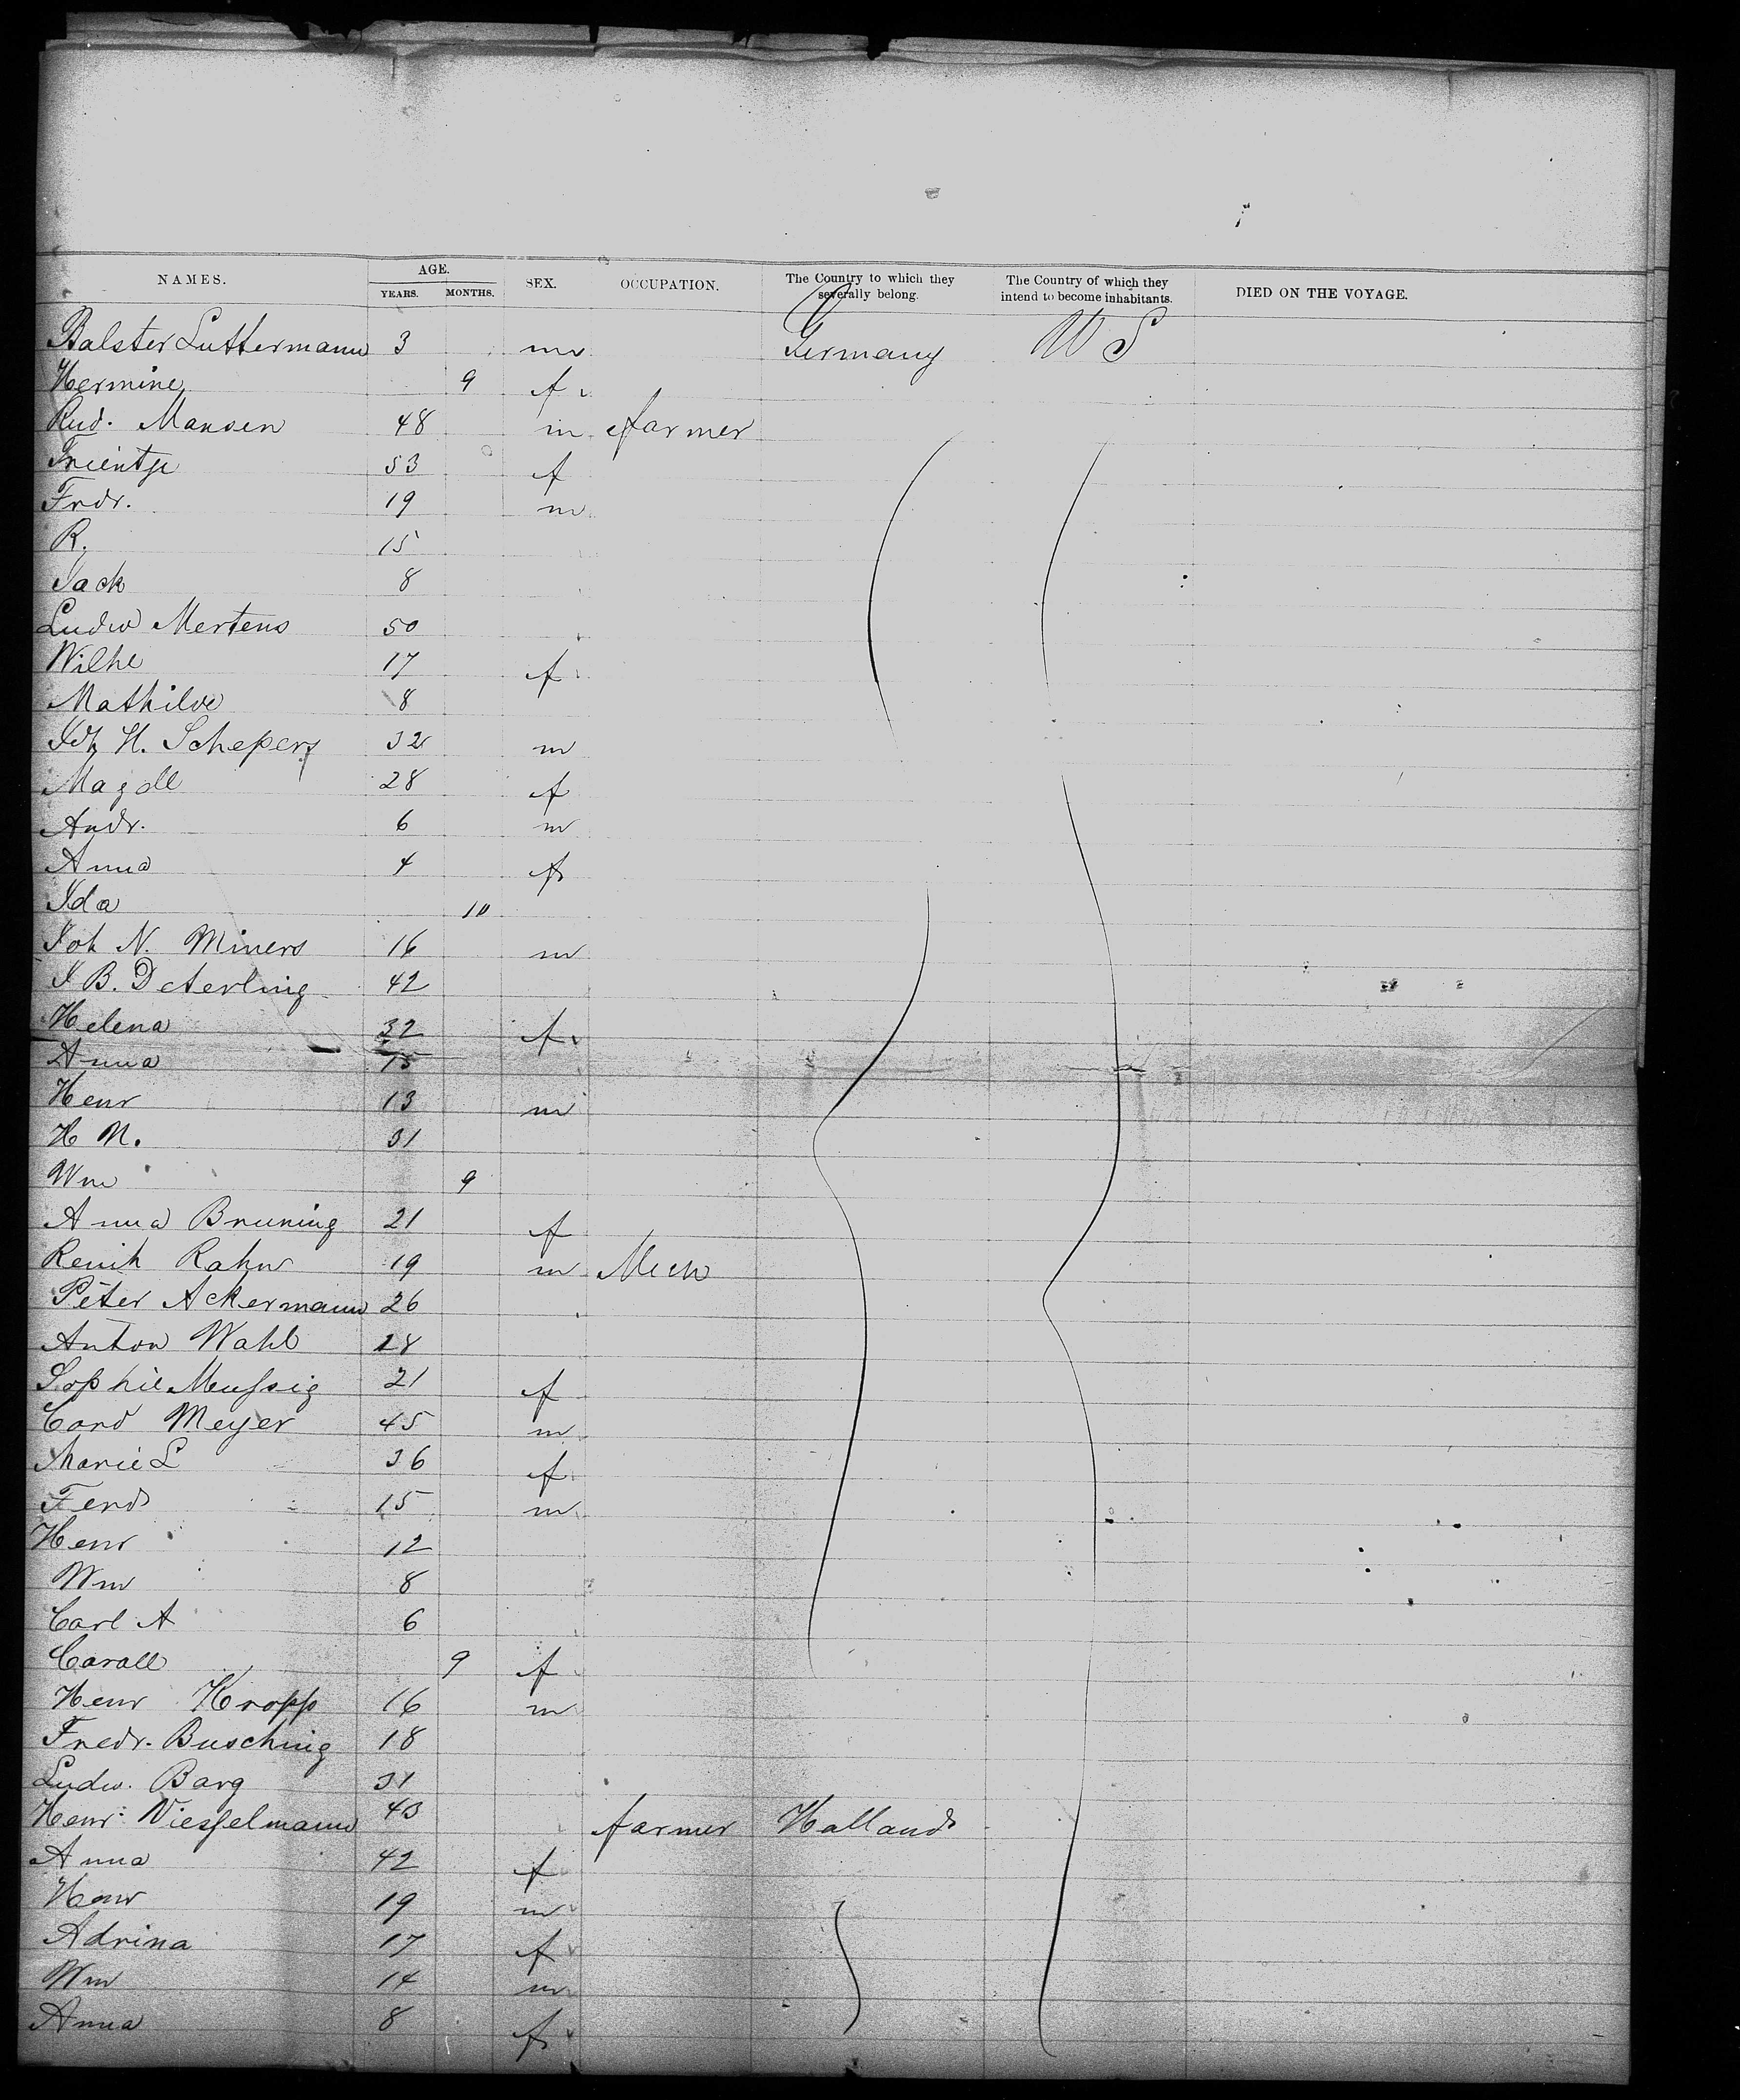 NAMES. AGE. YEARS. MONTHS. SEX. OCCUPATION. The Country to which they severally belong. The Country of which they intend to become inhabitants. DIED ON THE VOYAGE.
Balster Luttermann 3 m Germany U S
Hermine 9 f
Rud. Mansen 48 m farmer
Trientje 53 f
Frdr. 19 m
R. 15
Jack 8
Ludw Mertens 50
Wilhe 17 f
Mathilde 8
Joh H. Schepers 32 m
Magdl 28 f
Andr. 6 m
Anna 4 f
Ida 10
Joh N. Miners 16 m
J B. Deterling 42
Helena 32 f
Anna 15
Henr 13 m
H N. 31
Wm 9
Anna Bruning 21 f
Renih Rahn 19 m Mech
Peter Ackermann 26
Anton Wahl 28
Sophie Mussig 21 f
Cord Meyer 45 m
Marie L 36 f
Ferd 15 m
Henr 12
Wm 8
Carl A 6
Caroll 9 f
Henr Kropp 16 m
Fredr. Busching 18
Ludw. Barg 31
Henr. Niesselmann 43 farmer Holland
Anna 42 f
Henr 19 m
Adrina 17 f
Wm 14 m
Anna 8 f